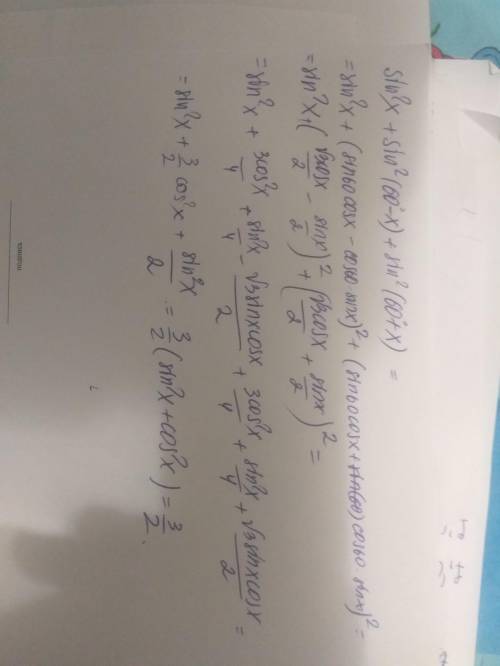 sin²x + sin²(60°-x) + sin²(60°+x) =
= sin²x + (sin60 cosx - cos60 sinx)² + (sin60cosx + cos60 · sinx)² =
= sin²x + (√3cosx/2 - sinx/2)² + (√3cosx/2 + sinx/2)² =
= sin²x + 3cos²x/4 + sin²x/4 - √3sinxcosx/2 + 3cos²x/4 + sin²x/4 + √3sinxcosx/2 =
= sin²x + 3/2 cos²x + sin²x/2 = 3/2 (sin²x + cos²x) = 3/2.